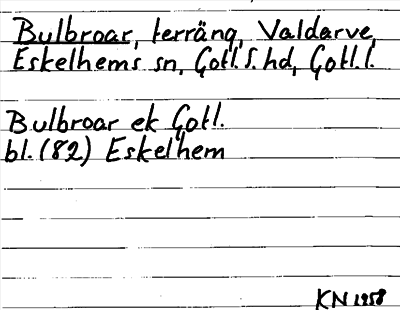 Bulbroar, terräng, Valdarve,
Eskelhems sn, Gotl. S. hd, Gotl. l.
Bulbroar ek Gotl.
bl. (82) Eskelhem
KN 1958